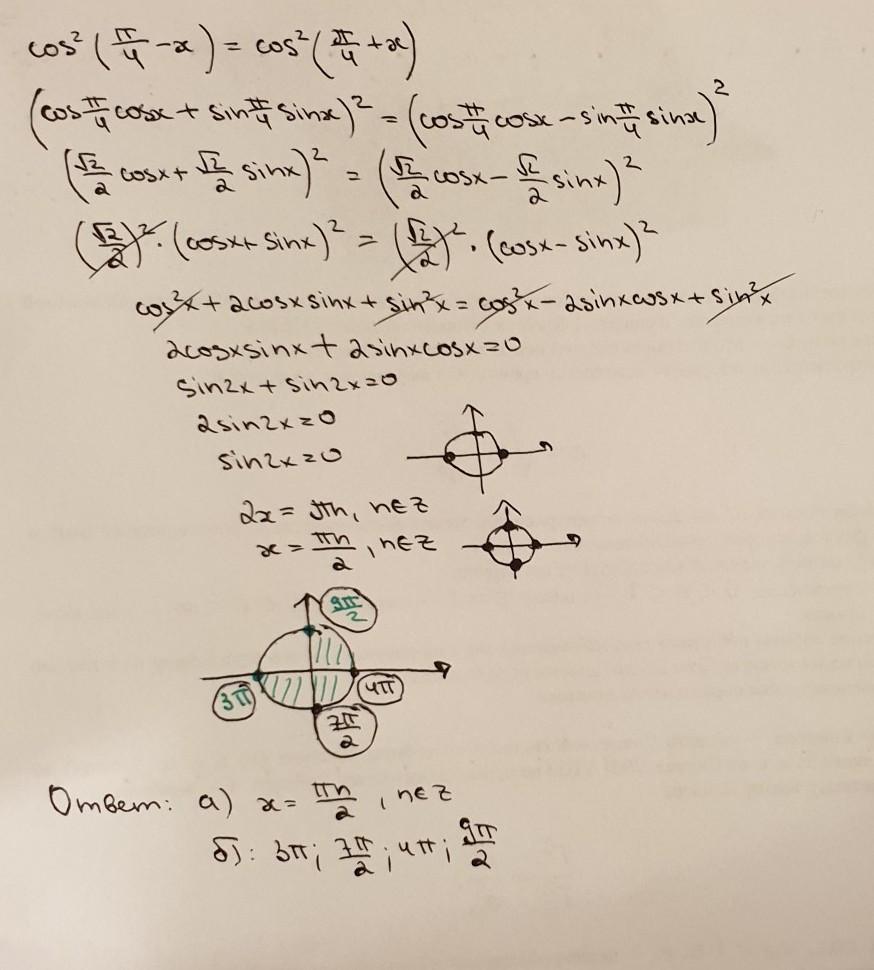 cos² (π/4 - x) = cos² (π/4 + x)
(cos π/4 cosx + sin π/4 sinx)² = (cos π/4 cosx - sin π/4 sinx)²
(√2/2 cosx + √2/2 sinx)² = (√2/2 cosx - √2/2 sinx)²
(√2/2)² · (cosx + sinx)² = (√2/2)² · (cosx - sinx)²
cos²x + 2cosx sinx + sin²x = cos²x - 2sinxcosx + sin²x
2cosxsinx + 2sinxcosx = 0
sin2x + sin2x = 0
2sin2x = 0
sin2x = 0
2x = πn, n∈Z
x = πn/2, n∈Z
9π/2
3π
4π
7π/2
Ответ: а) x = πn/2, n∈Z
б): 3π; 7π/2; 4π; 9π/2